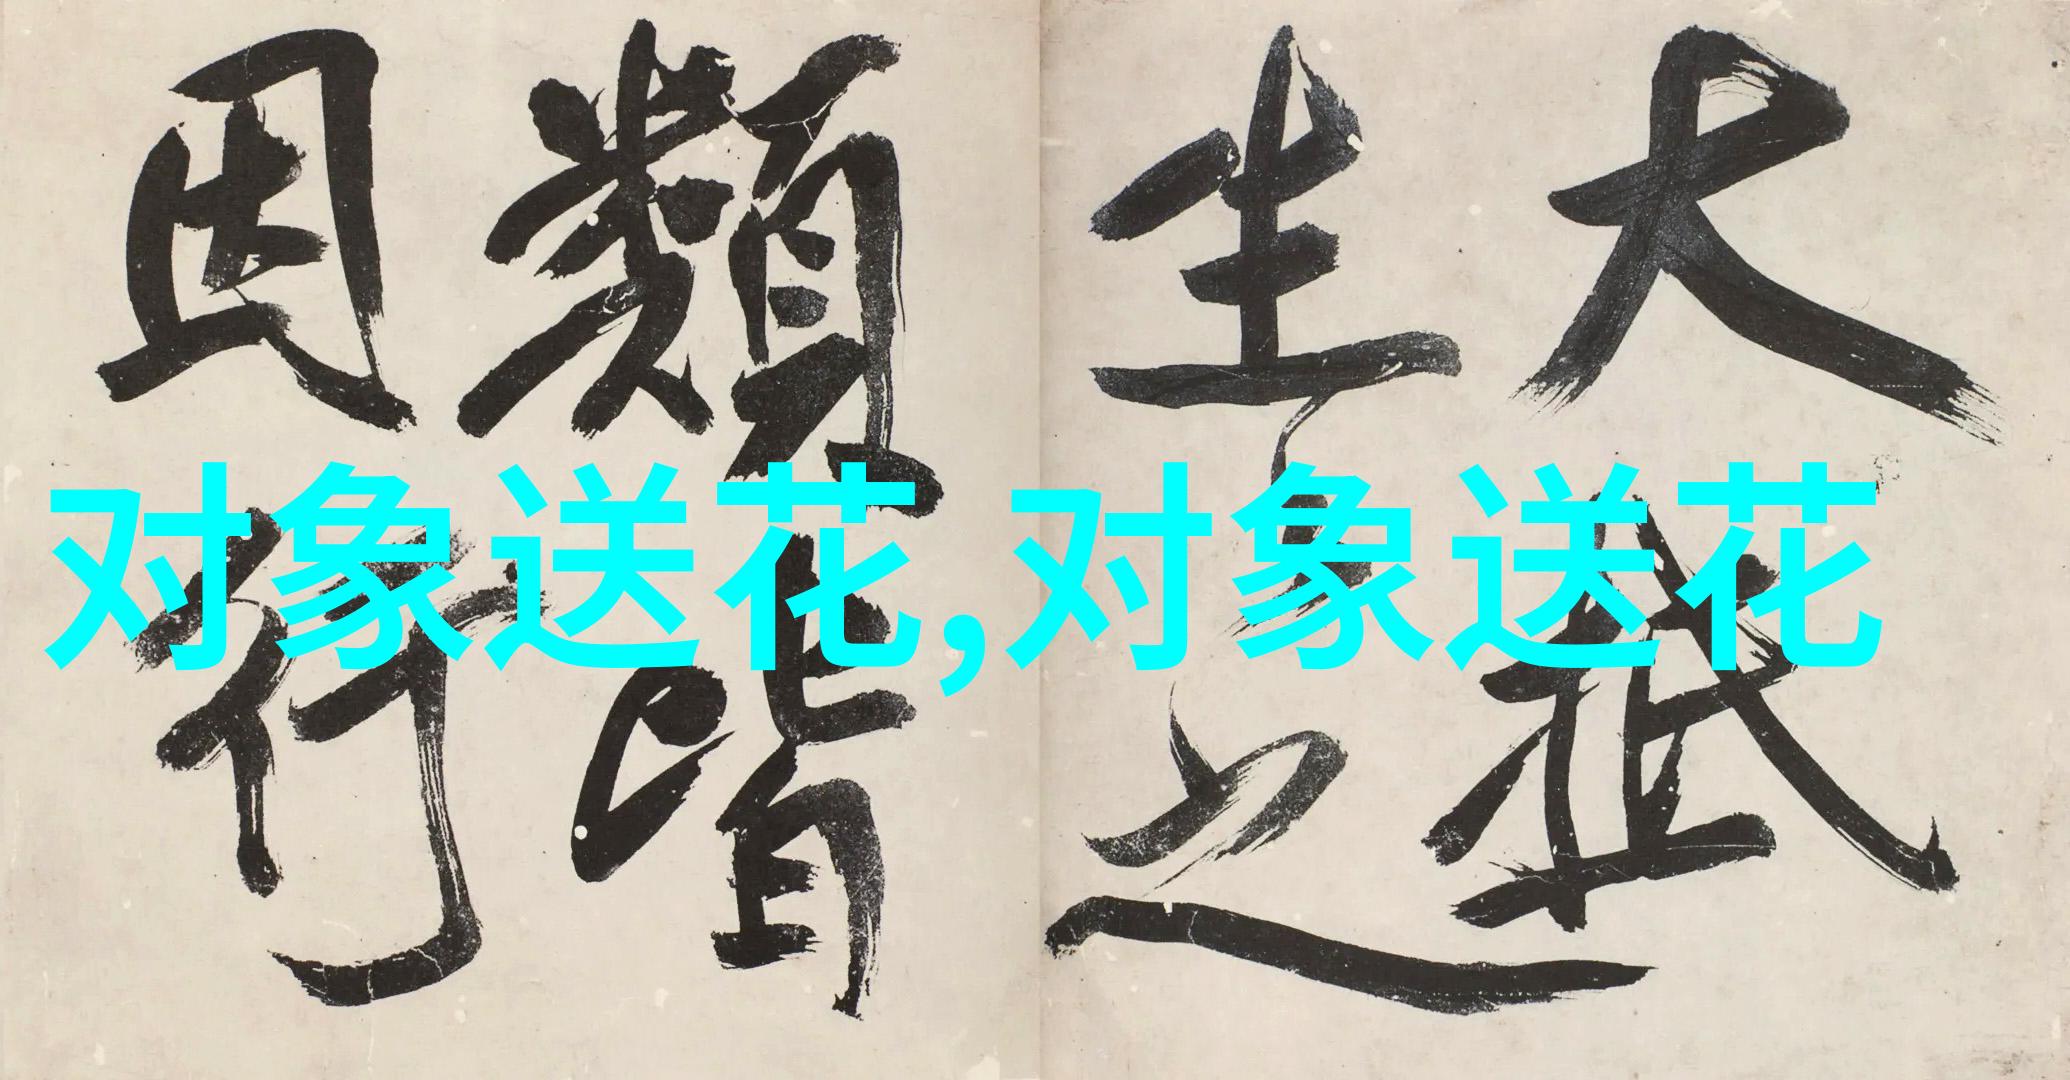 大抵
生之
類皆
因行
对象送花,对象送花